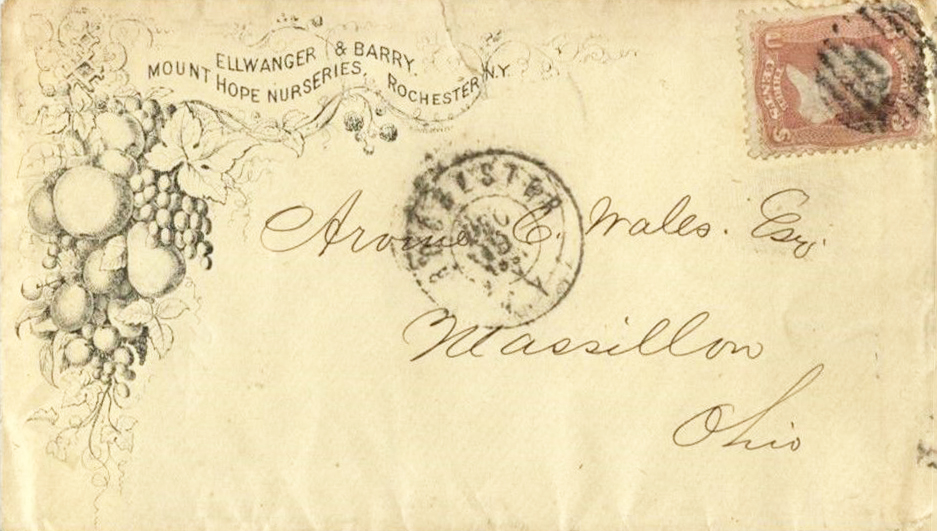 ELLWANGER & BARRY.
MOUNT HOPE NURSERIES, ROCHESTER N.Y.
U S
THREE CENTS
ROCHESTER
Arvine C. Wales. Esq.
Massillon
Ohio